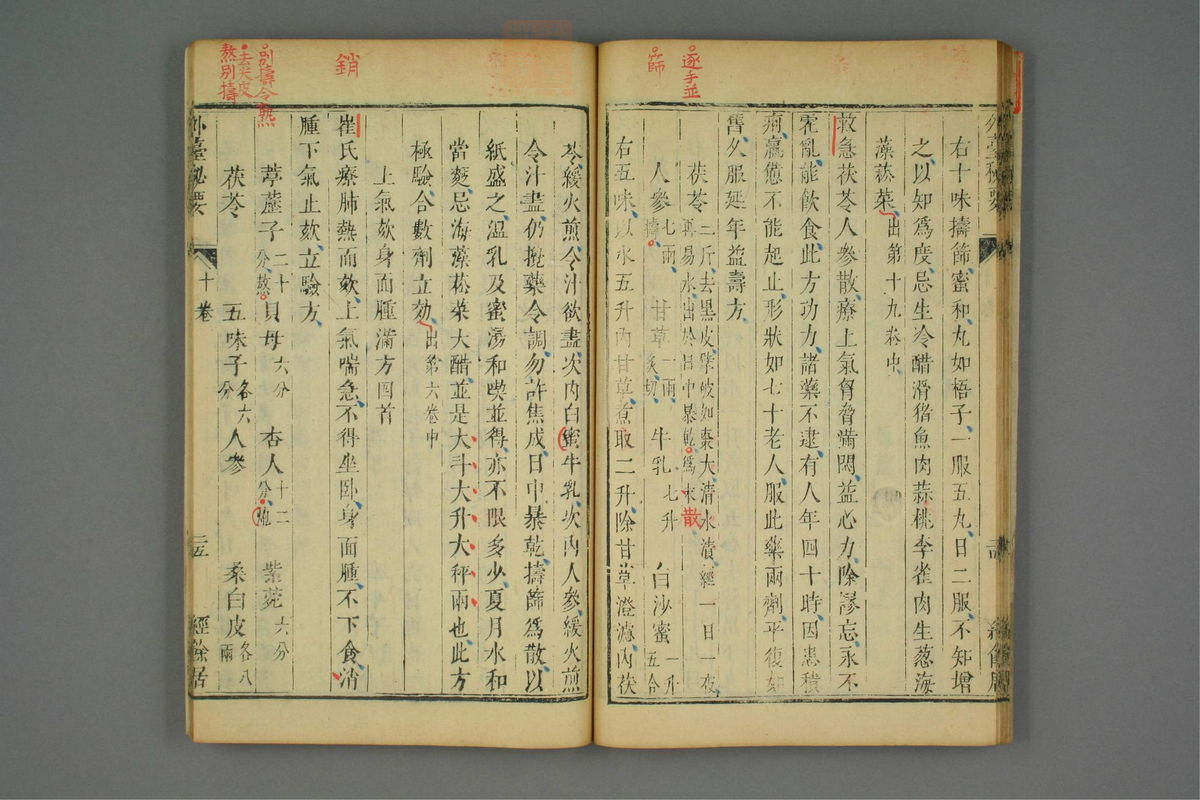 遂手並
篩
右十味擣篩蜜和丸如梧子一服五丸日二服不知增
之以知爲度忌生冷醋滑猪魚肉蒜桃李雀肉生葱海
藻菘菜出第十九卷中
救急茯苓人參散療上氣胷脅滿悶益心力除謬忘永不
霍亂能飲食此方功力諸藥不逮有人年四十時因患積
痢羸憊不能起止形狀如七十老人服此藥兩劑平復如
舊久服延年益壽方
茯苓二斤去黑皮擘破如棗大清水漬經一日一夜再易水出於日中暴乾爲末散
人參七兩擣 甘草一兩炙切 牛乳七升 白沙蜜一升五合
右五味以水五升內甘草煮取二升除甘草澄濾內茯
苓緩火煎令汁欲盡次內白蜜牛乳次內人參緩火煎
令汁盡仍攪藥令調勿許焦成日中暴乾擣篩爲散以
紙盛之溫乳及蜜湯和喫並得亦不限多少夏月水和
當麨忌海藻菘菜大醋並是大斗大升大秤兩也此方
極驗合數劑立効出第六卷中
上氣欬身面腫滿方四首
崔氏療肺熱面欬上氣喘急不得坐臥身面腫不下食消
腫下氣止欬立驗方
葶藶子二十分熬 貝母六分 杏人十二分炮 紫菀六分
茯苓 五味子各六分 人參 桑白皮各八兩
外臺秘要 十卷 二五 經餘居
銷
別擣令熟
去尖皮
熬別擣